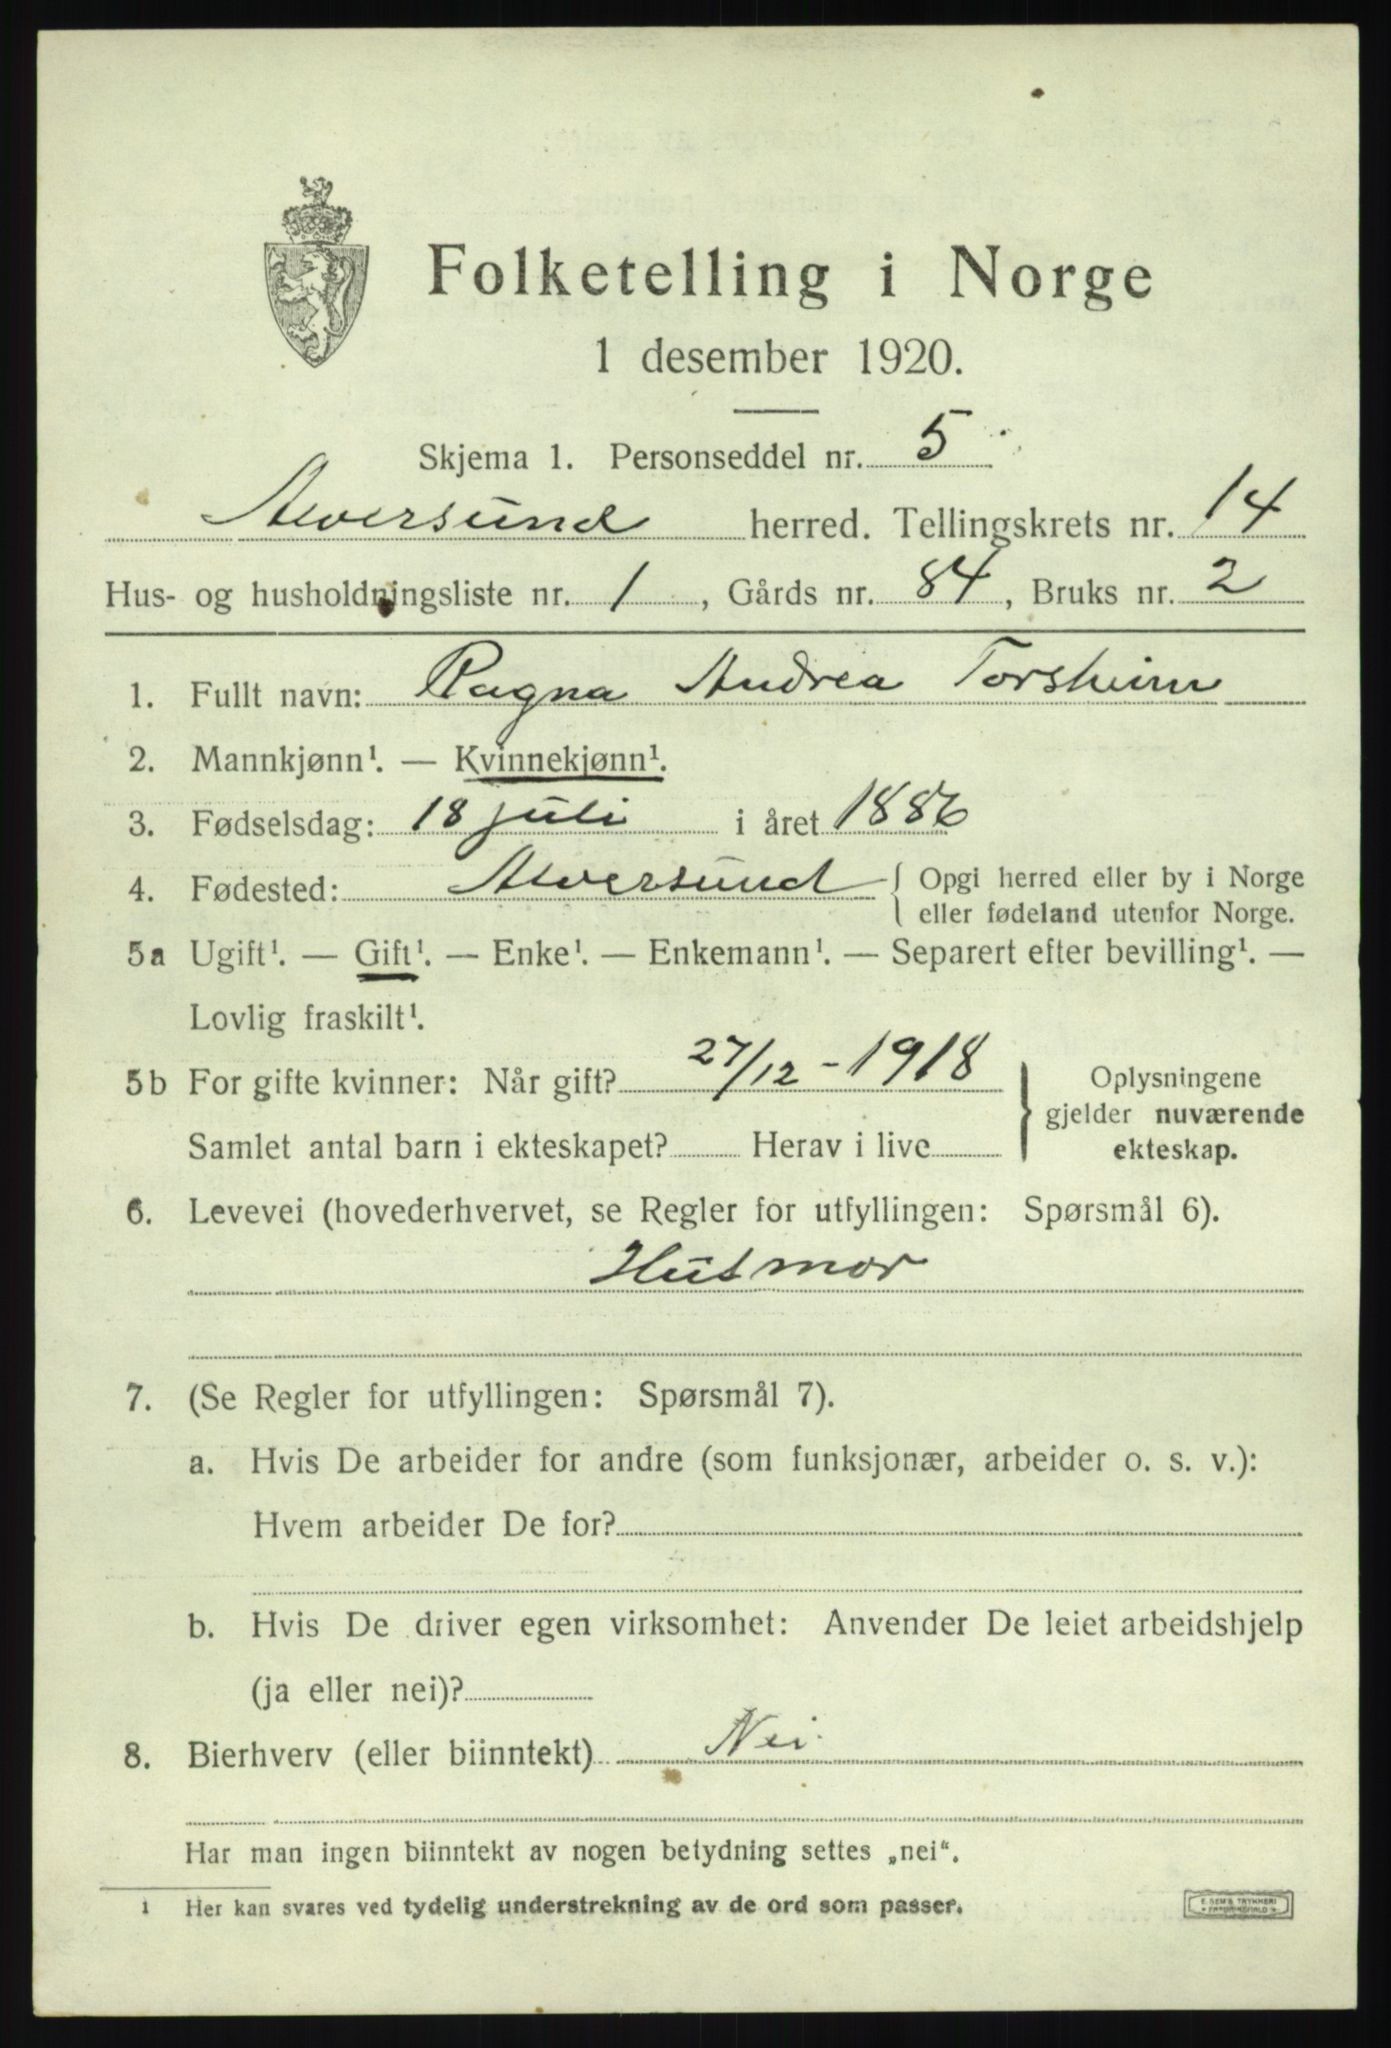 Folketelling i Norge
1 desember 1920.
Skjema 1. Personseddel nr. 5
Alversund herred. Tellingskrets nr. 14
Hus- og husholdningsliste nr. 1, Gårds nr. 84, Bruks nr. 2
1. Fullt navn: Ragna Andrea Torsheim
2. Mannkjønn¹. — Kvinnekjønn¹.
3. Fødselsdag: 18 juli i året 1886
4. Fødested: Alversund { Opgi herred eller by i Norge
eller fødeland utenfor Norge.
5a Ugift¹. — Gift¹. — Enke¹. — Enkemann¹. — Separert efter bevilling¹. —
Lovlig fraskilt¹.
5b For gifte kvinner: Når gift? 27/12 - 1918
Samlet antal barn i ekteskapet? Herav i live
} Oplysningene
gjelder nuværende
ekteskap.
6. Levevei (hovederhvervet, se Regler for utfyllingen: Spørsmål 6).
Husmor
7. (Se Regler for utfyllingen: Spørsmål 7).
a. Hvis De arbeider for andre (som funksjonær, arbeider o. s. v.):
Hvem arbeider De for?
b. Hvis De driver egen virksomhet: Anvender De leiet arbeidshjelp
(ja eller nei)?
8. Bierhverv (eller biinntekt) Nei
Har man ingen biinntekt av nogen betydning settes „nei“.
1 Her kan svares ved tydelig understrekning av de ord som passer.
E. SEM'S TRYKKERI
FREDRIKSHALD